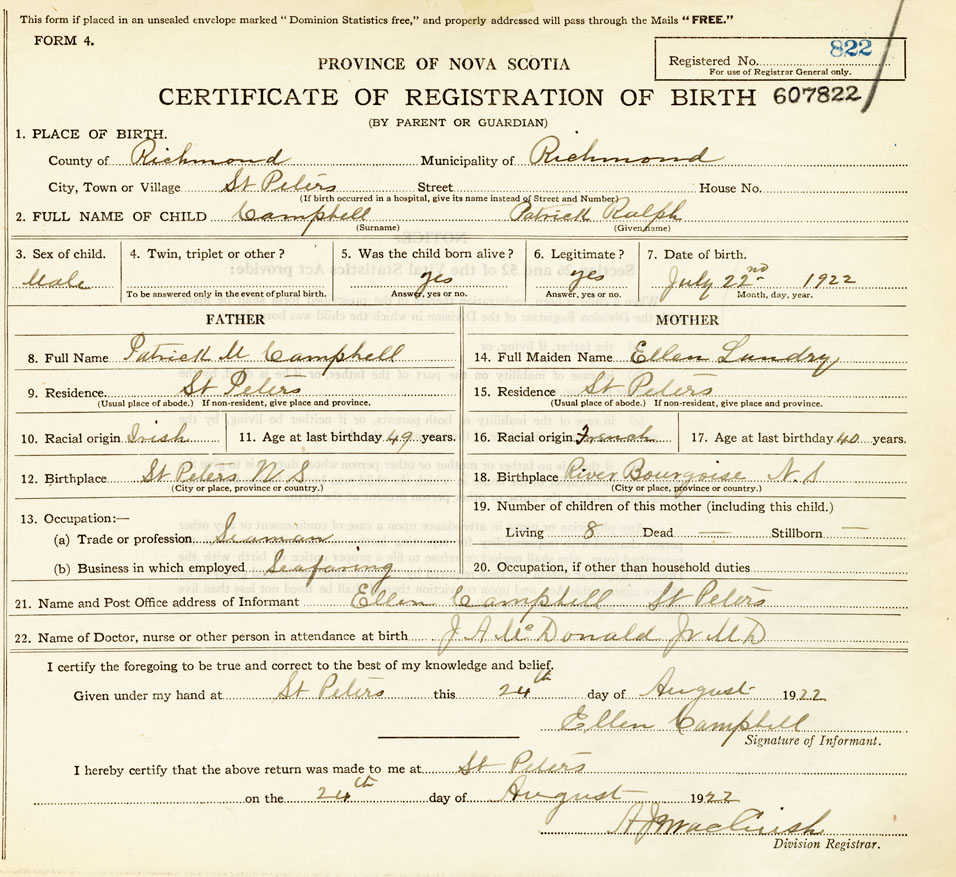 This form if placed in an unsealed envelope marked "Dominion Statistics free," and properly addressed will pass through the Mails "FREE."
FORM 4.
822
Registered No.
For use of Registrar General only.
PROVINCE OF NOVA SCOTIA
CERTIFICATE OF REGISTRATION OF BIRTH 607822
(BY PARENT OR GUARDIAN)
1. PLACE OF BIRTH.
County of Richmond Municipality of Richmond
City, Town or Village St Peters Street House No.
(If birth occurred in a hospital, give its name instead of Street and Number)
2. FULL NAME OF CHILD Campbell Patrick Ralph
(Surname) (Given name)
3. Sex of child. 4. Twin, triplet or other? 5. Was the child born alive? 6. Legitimate? 7. Date of birth.
Male yes yes July 22nd 1922
To be answered only in the event of plural birth. Answer, yes or no. Answer, yes or no. Month, day, year.
FATHER MOTHER
8. Full Name Patrick M Campbell 14. Full Maiden Name Ellen Landry
9. Residence. St Peters 15. Residence St Peters
(Usual place of abode.) If non-resident, give place and province. (Usual place of abode.) If non-resident, give place and province.
10. Racial origin Irish 11. Age at last birthday 49 years. 16. Racial origin French 17. Age at last birthday 40 years.
12. Birthplace St Peters N S 18. Birthplace River Bourgoise N.S
(City or place, province or country.) (City or place, province or country.)
13. Occupation:— 19. Number of children of this mother (including this child.)
(a) Trade or profession Seaman Living 8 Dead — Stillborn —
(b) Business in which employed Seafaring 20. Occupation, if other than household duties
21. Name and Post Office address of Informant Ellen Campbell St Peters
22. Name of Doctor, nurse or other person in attendance at birth J A McDonald Jr MD
I certify the foregoing to be true and correct to the best of my knowledge and belief.
Given under my hand at St Peters this 24th day of August 1922
Ellen Campbell
Signature of Informant.
I hereby certify that the above return was made to me at St Peters
on the 24th day of August 1922
A J MacCuish
Division Registrar.